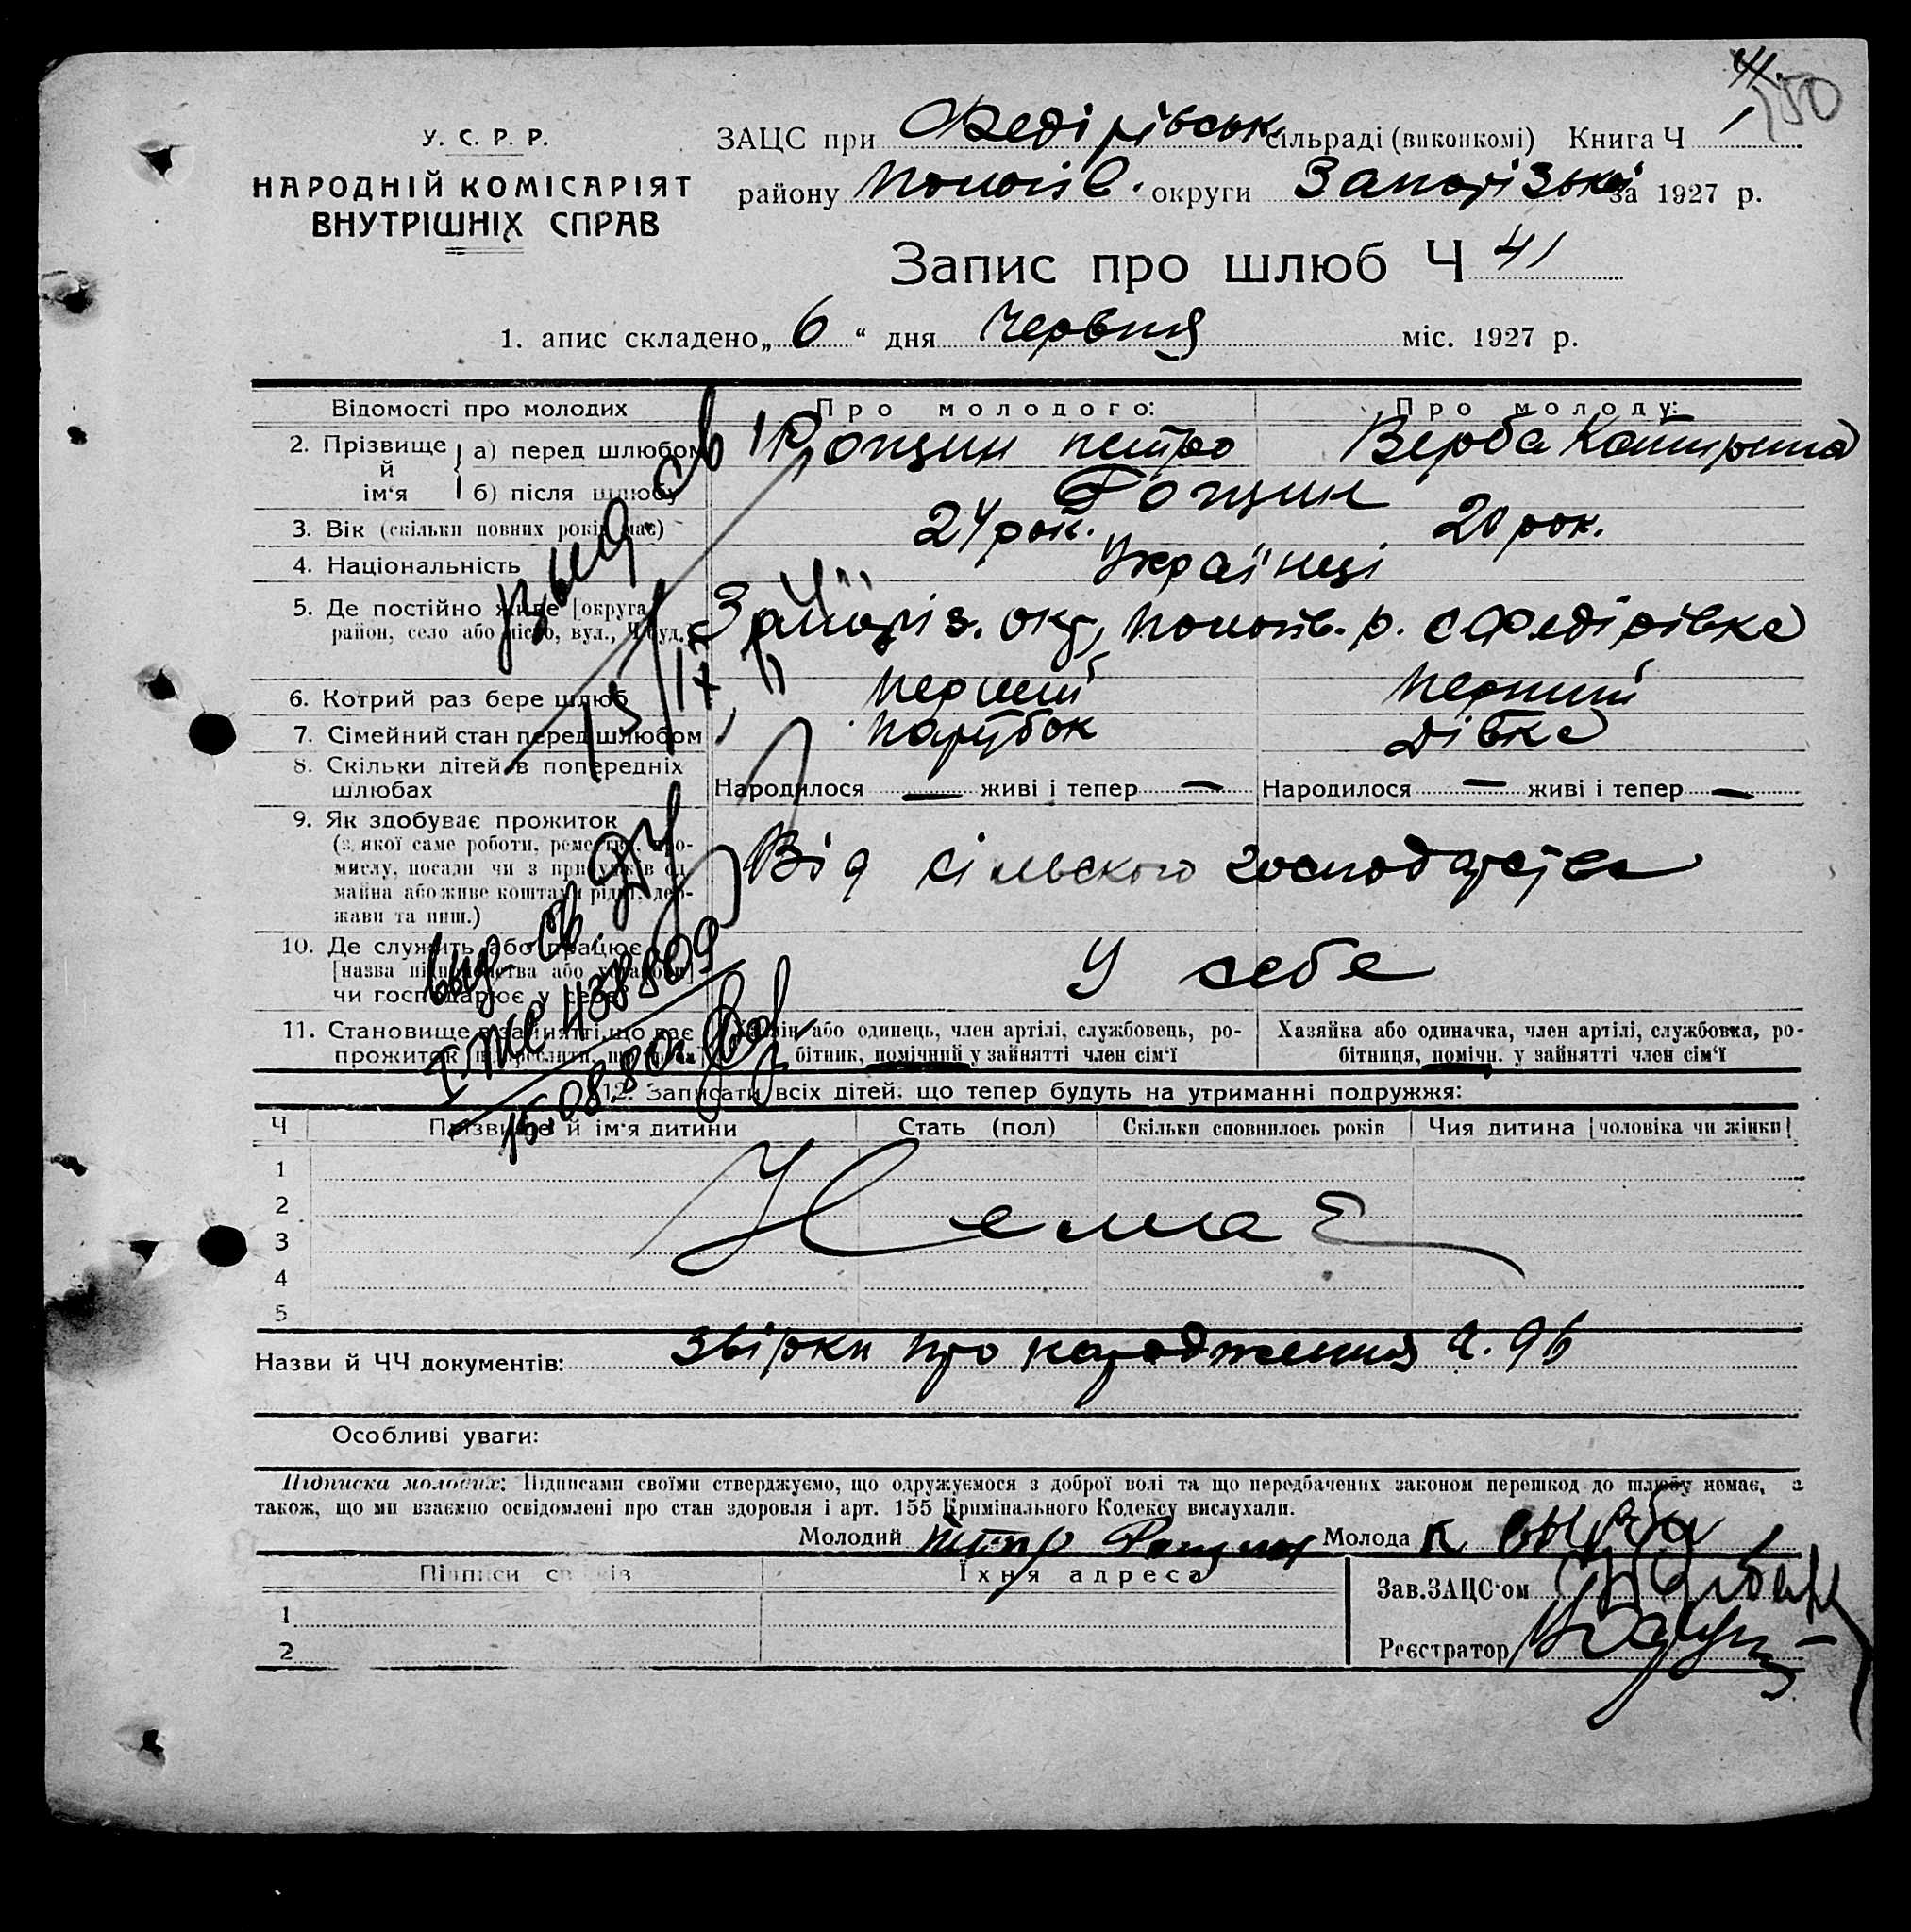 У. С. Р. Р.
НАРОДНІЙ КОМІСАРІЯТ
ВНУТРІШНІХ СПРАВ
ЗАЦС при Федірівськ. сільраді (виконкомі) Книга Ч 1
150
району Пологів. округи Запорізької за 1927 р.
Запис про шлюб Ч 41
1. апис складено „ 6 “ дня Червня міс. 1927 р.
Відомості про молодих
Про молодого:
Про молоду:
2. Прізвище й ім'я
а) перед шлюбом
Рощин Петро
Верба Катирина
б) після шлюбу
Рощин
3. Вік (скільки повних років має)
24 рок.
20 рок.
4. Національність
Українці
5. Де постійно живе [округа, район, село або місто, вул., Ч буд.]
Запоріз. окр, Пологів. р. с Федірівка
6. Котрий раз бере шлюб
перший
перший
7. Сімейний стан перед шлюбом
парубок
дівка
8. Скільки дітей в попередніх
шлюбах
Народилося — живі і тепер —
Народилося — живі і тепер —
9. Як здобуває прожиток
(з якої саме роботи, ремества, про-
мислу, посади чи з прибутків од
майна або живе коштами рідні, дер-
жави та инш.)
Від сільского господарства
10. Де служить або працює
[назва підприємства або установи]
чи господарює у себе
У себе
11. Становище в зайнятті, що дає
прожиток
Хазяїн або одинець, член артілі, службовець, ро-
бітник, помічний у зайнятті член сім'ї
Хазяйка або одиначка, член артілі, службовка, ро-
бітниця, помічн. у зайнятті член сім'ї
выд. св.
І-ЖС 438809
15.08.80
12. Записати всіх дітей, що тепер будуть на утриманні подружжя:
Ч
Прізвище й ім'я дитини
Стать (пол)
Скільки сповнилось років
Чия дитина [чоловіка чи жінки]
1
2
3
4
5
Немає
Назви й ЧЧ документів: Звірки про народження Ч. 96
Особливі уваги:
Підписка молодих: Підписами своїми стверджуємо, що одружуємося з доброї волі та що передбачених законом перешкод до шлюбу немає, а
також, що ми взаємно освідомлені про стан здоровля і арт. 155 Кримінального Кодексу вислухали.
Молодий Петро Рощин Молода К Вырба
Підписи свідків
Їхня адреса
1
2
Зав. ЗАЦС'ом
Реєстратор